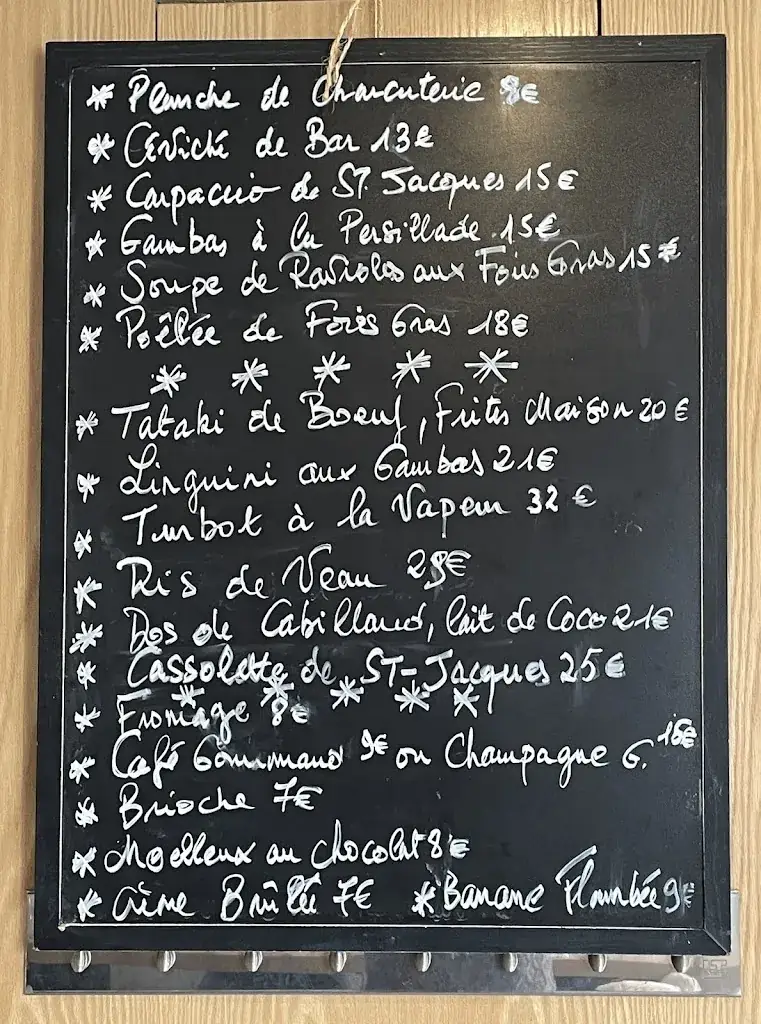 * Planche de Charcuterie 8€
* Céviché de Bar 13€
* Carpaccio de ST. Jacques 15€
* Gambas à la Persillade. 15€
* Soupe de Ravioles aux Foies Gras 15€
* Poêlée de Foies Gras 18€
* * * * *
* Tataki de Boeuf, Frites Maison 20€
* Linguini aux Gambas 21€
* Turbot à la Vapeur 32€
* Ris de Veau 29€
* Dos de Cabillaud, lait de Coco 21€
* Cassolette de ST-Jacques 25€
* * * * *
* Fromage 8€
* Café Gourmand 9€ ou Champagne G. 15€
* Brioche 7€
* Moelleux au chocolat 8€
* Crème Brûlée 7€ * Banane Flambée 9€